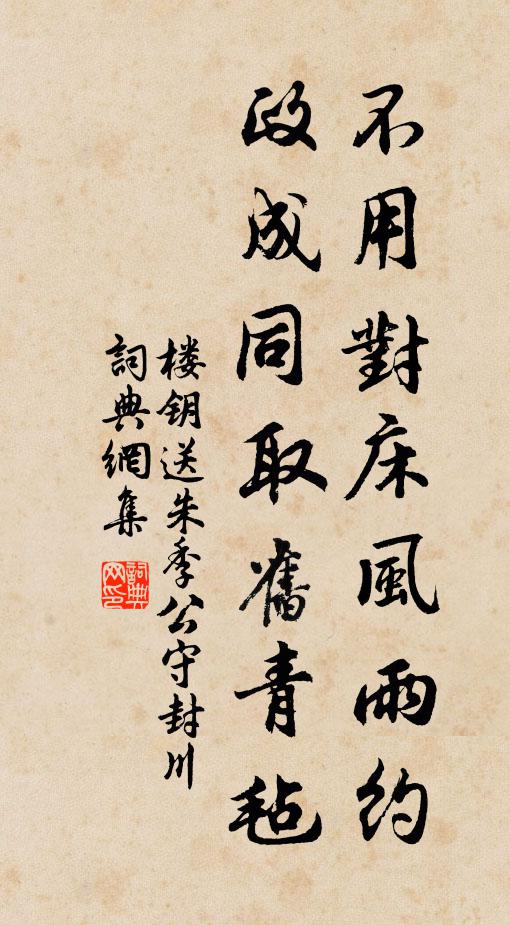 不用對床風雨約
政成同取舊青毡
楼钥送朱季公守封川
詞典網集
詞典网印